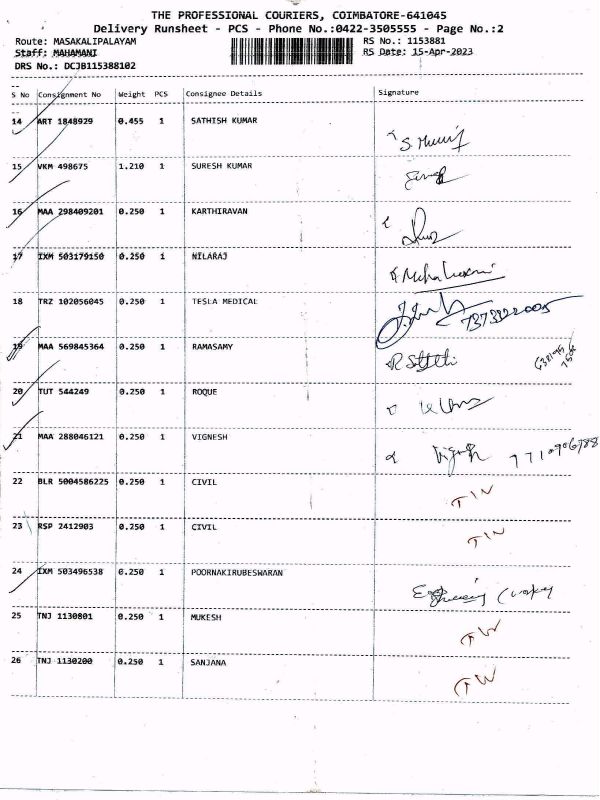 THE PROFESSIONAL COURIERS, COIMBATORE-641045
Delivery Runsheet - PCS - Phone No.:0422-3505555 - Page No.:2
Route: MASAKALIPALAYAM RS No.: 1153881
Staff: MAHAMANI RS Date: 15-Apr-2023
DRS No.: DCJB115388102
S No Consignment No Weight PCS Consignee Details Signature
14 ART 1848929 0.455 1 SATHISH KUMAR
15 VKM 498675 1.210 1 SURESH KUMAR
16 MAA 298409201 0.250 1 KARTHIRAVAN
17 IXM 503179150 0.250 1 NILARAJ
18 TRZ 102056045 0.250 1 TESLA MEDICAL
19 MAA 569845364 0.250 1 RAMASAMY
20 TUT 544249 0.250 1 ROQUE
21 MAA 288046121 0.250 1 VIGNESH
22 BLR 5004586225 0.250 1 CIVIL
23 RSP 2412903 0.250 1 CIVIL
24 IXM 503496538 0.250 1 POORNAKIRUBESWARAN
25 TNJ 1130801 0.250 1 MUKESH
26 TNJ 1130200 0.250 1 SANJANA